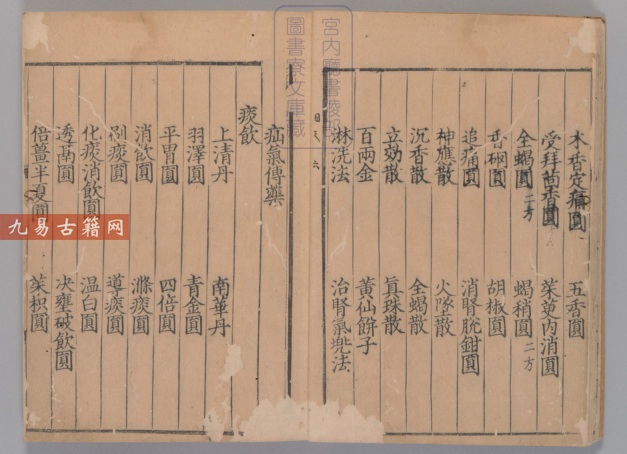 木香定痛圓 五香圓
受拜茴香圓 茱萸內消圓
全蝎圓二方 蝎稍圓二方
香硇圓 胡椒圓
追痛圓 消腎脫鉗圓
神應散 火墜散
沉香散 全蝎散
立効散 眞珠散
百兩金 黃仙餅子
淋洗法 治腎氣兠法
疝氣傳藥
痰飲
上清丹 南華丹
羽澤圓 青金圓
平胃圓 四倍圓
消飲圓 滌痰圓
剜痰圓 導痰圓
化痰消飲圓 温白圓
透鬲圓 决壅破飲圓
倍薑半夏圓 茱枳圓
宮內廳書陵部
圖書寮文庫藏
九易古籍网